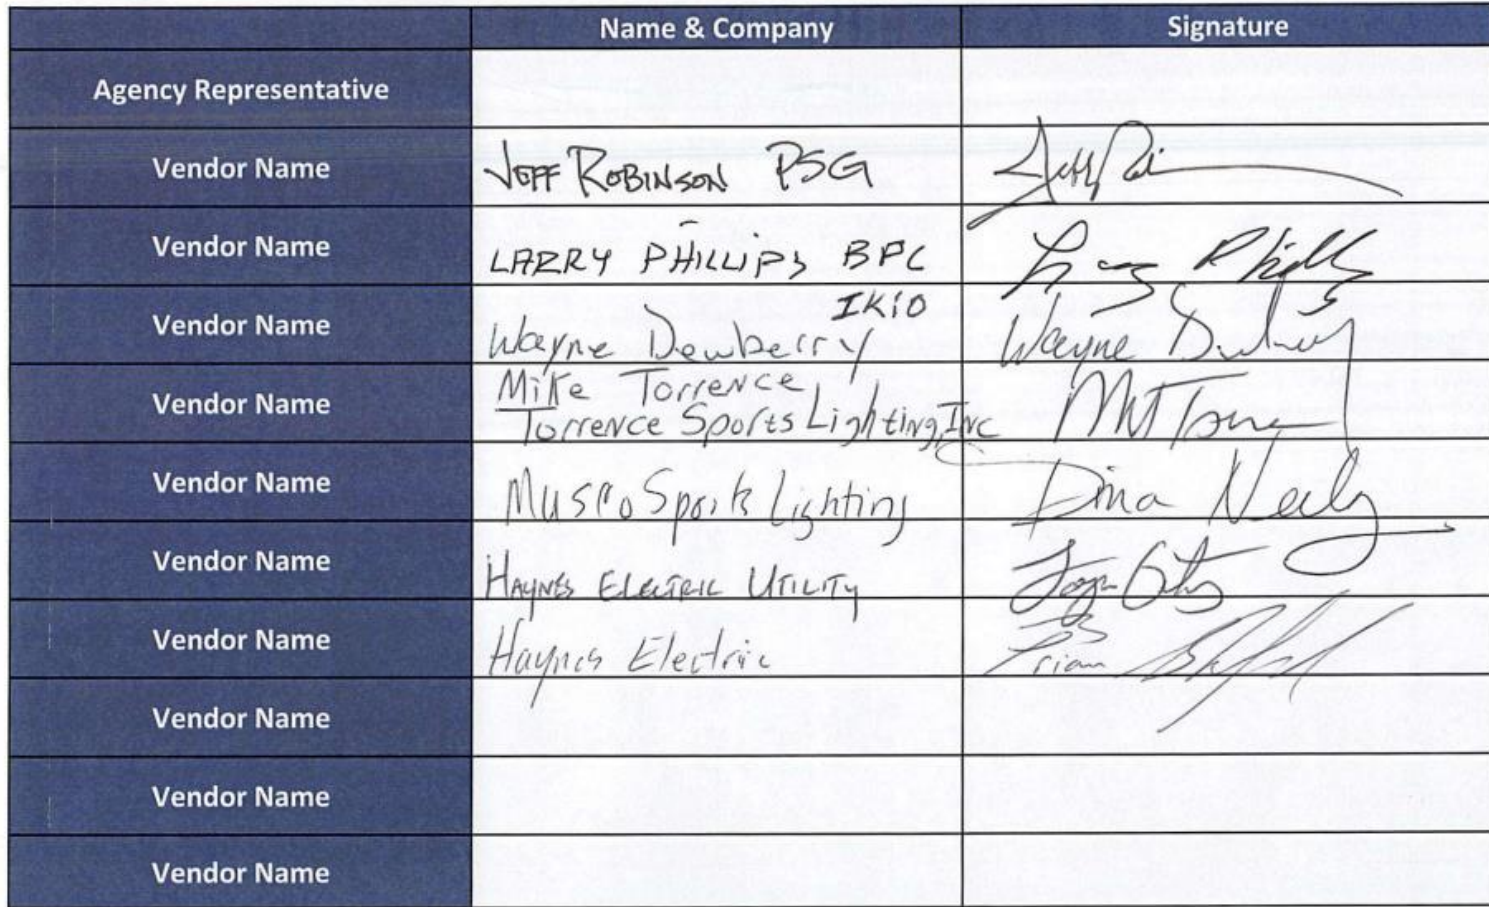 Name & Company Signature
Agency Representative
Vendor Name JEFF ROBINSON PSG Jeff
Vendor Name LARRY PHILLIPS BPC Larry Phillips
IKIO
Vendor Name Wayne Dewberry Wayne
Mike Torrence
Vendor Name Torrence Sports Lighting, Inc
Vendor Name Musco Sports Lighting Dina Neely
Vendor Name HAYNES ELECTRIC UTILITY
Vendor Name Haynes Electric Brian
Vendor Name
Vendor Name
Vendor Name